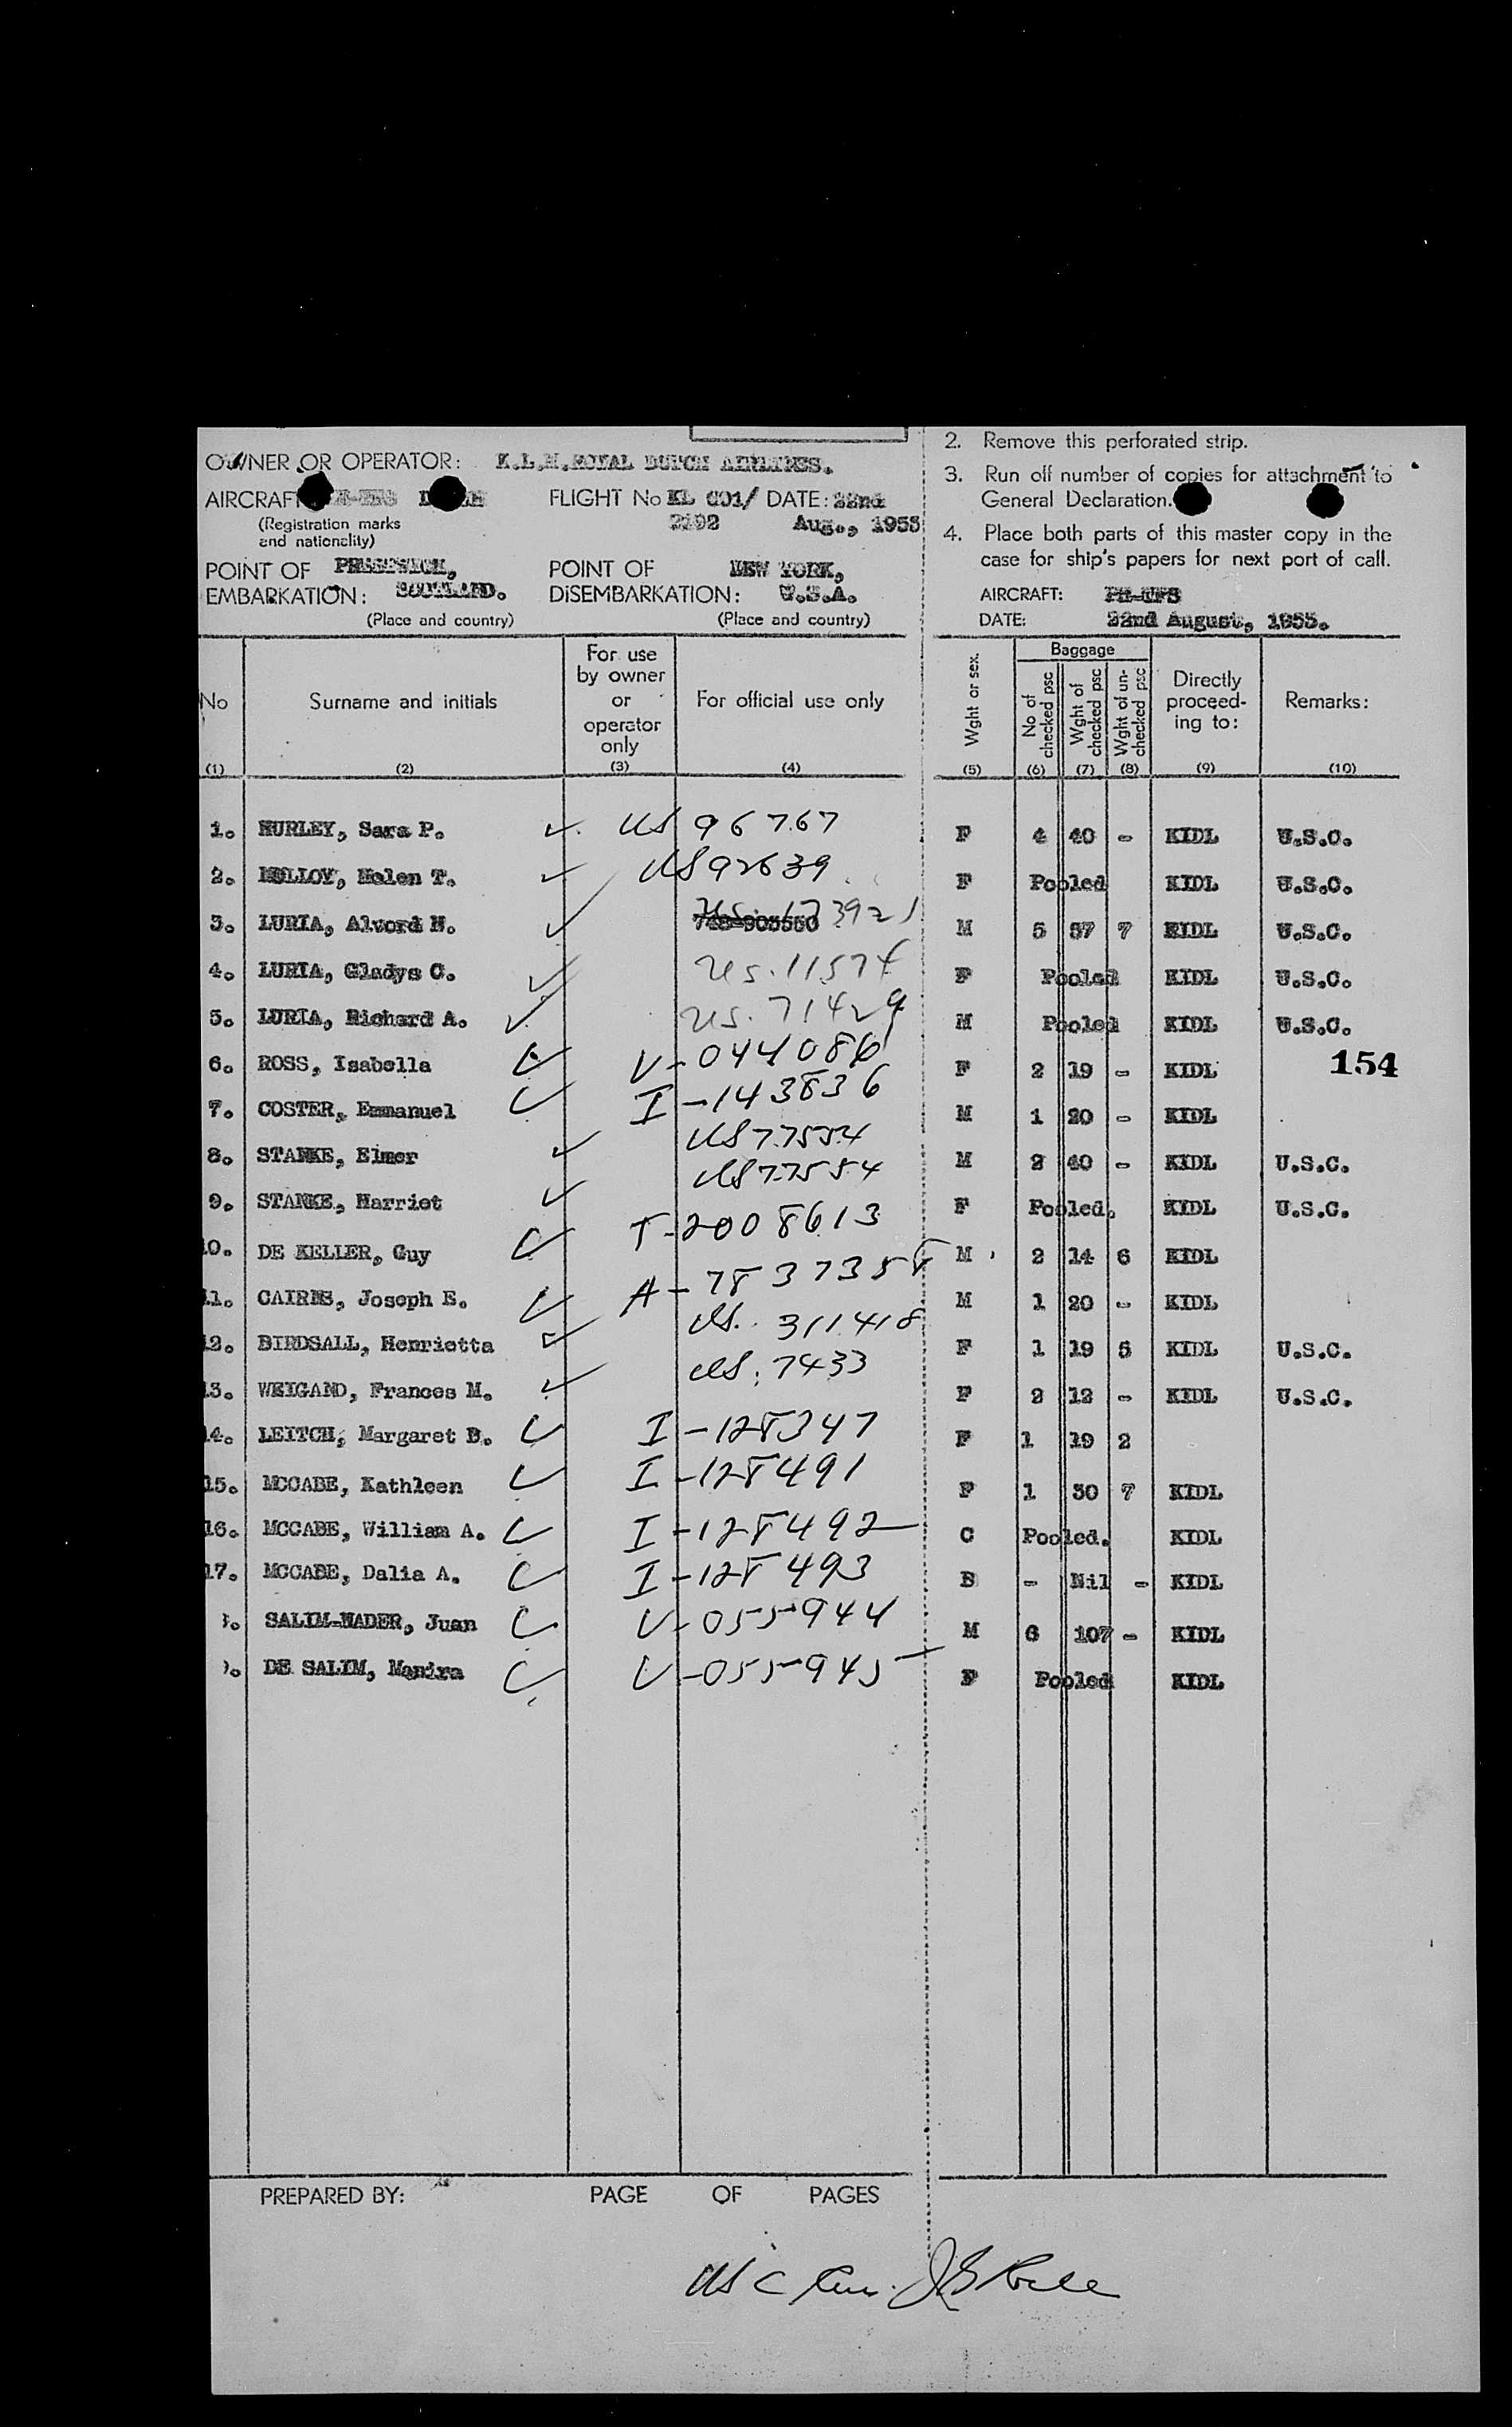 OWNER OR OPERATOR: K.L.M. ROYAL DUTCH AIRLINES.
AIRCRAFT
(Registration marks and nationality)
FLIGHT No KL 601/ 2192 DATE: 22nd Aug., 1955
POINT OF EMBARKATION: PRESTWICK, SCOTLAND.
(Place and country)
POINT OF DISEMBARKATION: NEW YORK, U.S.A.
(Place and country)
2. Remove this perforated strip.
3. Run off number of copies for attachment to
General Declaration.
4. Place both parts of this master copy in the
case for ship's papers for next port of call.
AIRCRAFT: PH-
DATE: 22nd August, 1955.
No (1)
Surname and initials (2)
For use by owner or operator only (3)
For official use only (4)
Wght or sex. (5)
Baggage
No of checked psc (6)
Wght of checked psc (7)
Wght of un-checked psc (8)
Directly proceed-ing to: (9)
Remarks: (10)
1. HURLEY, Sara P. US 96767 F 4 40 - KIDL U.S.C.
2. MOLLOY, Helen T. US 92639 F Pooled KIDL U.S.C.
3. LURIA, Alvord M. M 5 87 7 KIDL U.S.C.
4. LURIA, Gladys C. US. 11574 F Pooled KIDL U.S.C.
5. LURIA, Richard A. US. 71429 M Pooled KIDL U.S.C.
6. ROSS, Isabella V-044086 F 2 19 - KIDL
154
7. COSTER, Emmanuel I-143836 M 1 20 - KIDL
8. STANKE, Elmer US 77554 M 2 40 - KIDL U.S.C.
9. STANKE, Harriet US 77554 F Pooled. KIDL U.S.C.
10. DE KELLER, Guy T-2008613 M 2 14 6 KIDL
11. CAIRNS, Joseph E. A-7837358 M 1 20 - KIDL
12. BIRDSALL, Henrietta US. 311418 F 1 19 5 KIDL U.S.C.
13. WEIGAND, Frances M. US. 7433 F 2 12 - KIDL U.S.C.
14. LEITCH, Margaret B. I-128347 F 1 19 2
15. MCCABE, Kathleen I-128491 F 1 30 7 KIDL
16. MCCABE, William A. I-128492 C Pooled. KIDL
17. MCCABE, Dalia A. I-128493 B - Nil - KIDL
SALIM-NADER, Juan V-055944 M 6 107 - KIDL
DE SALIM, Manira V-055945 F Pooled KIDL
PREPARED BY: PAGE OF PAGES